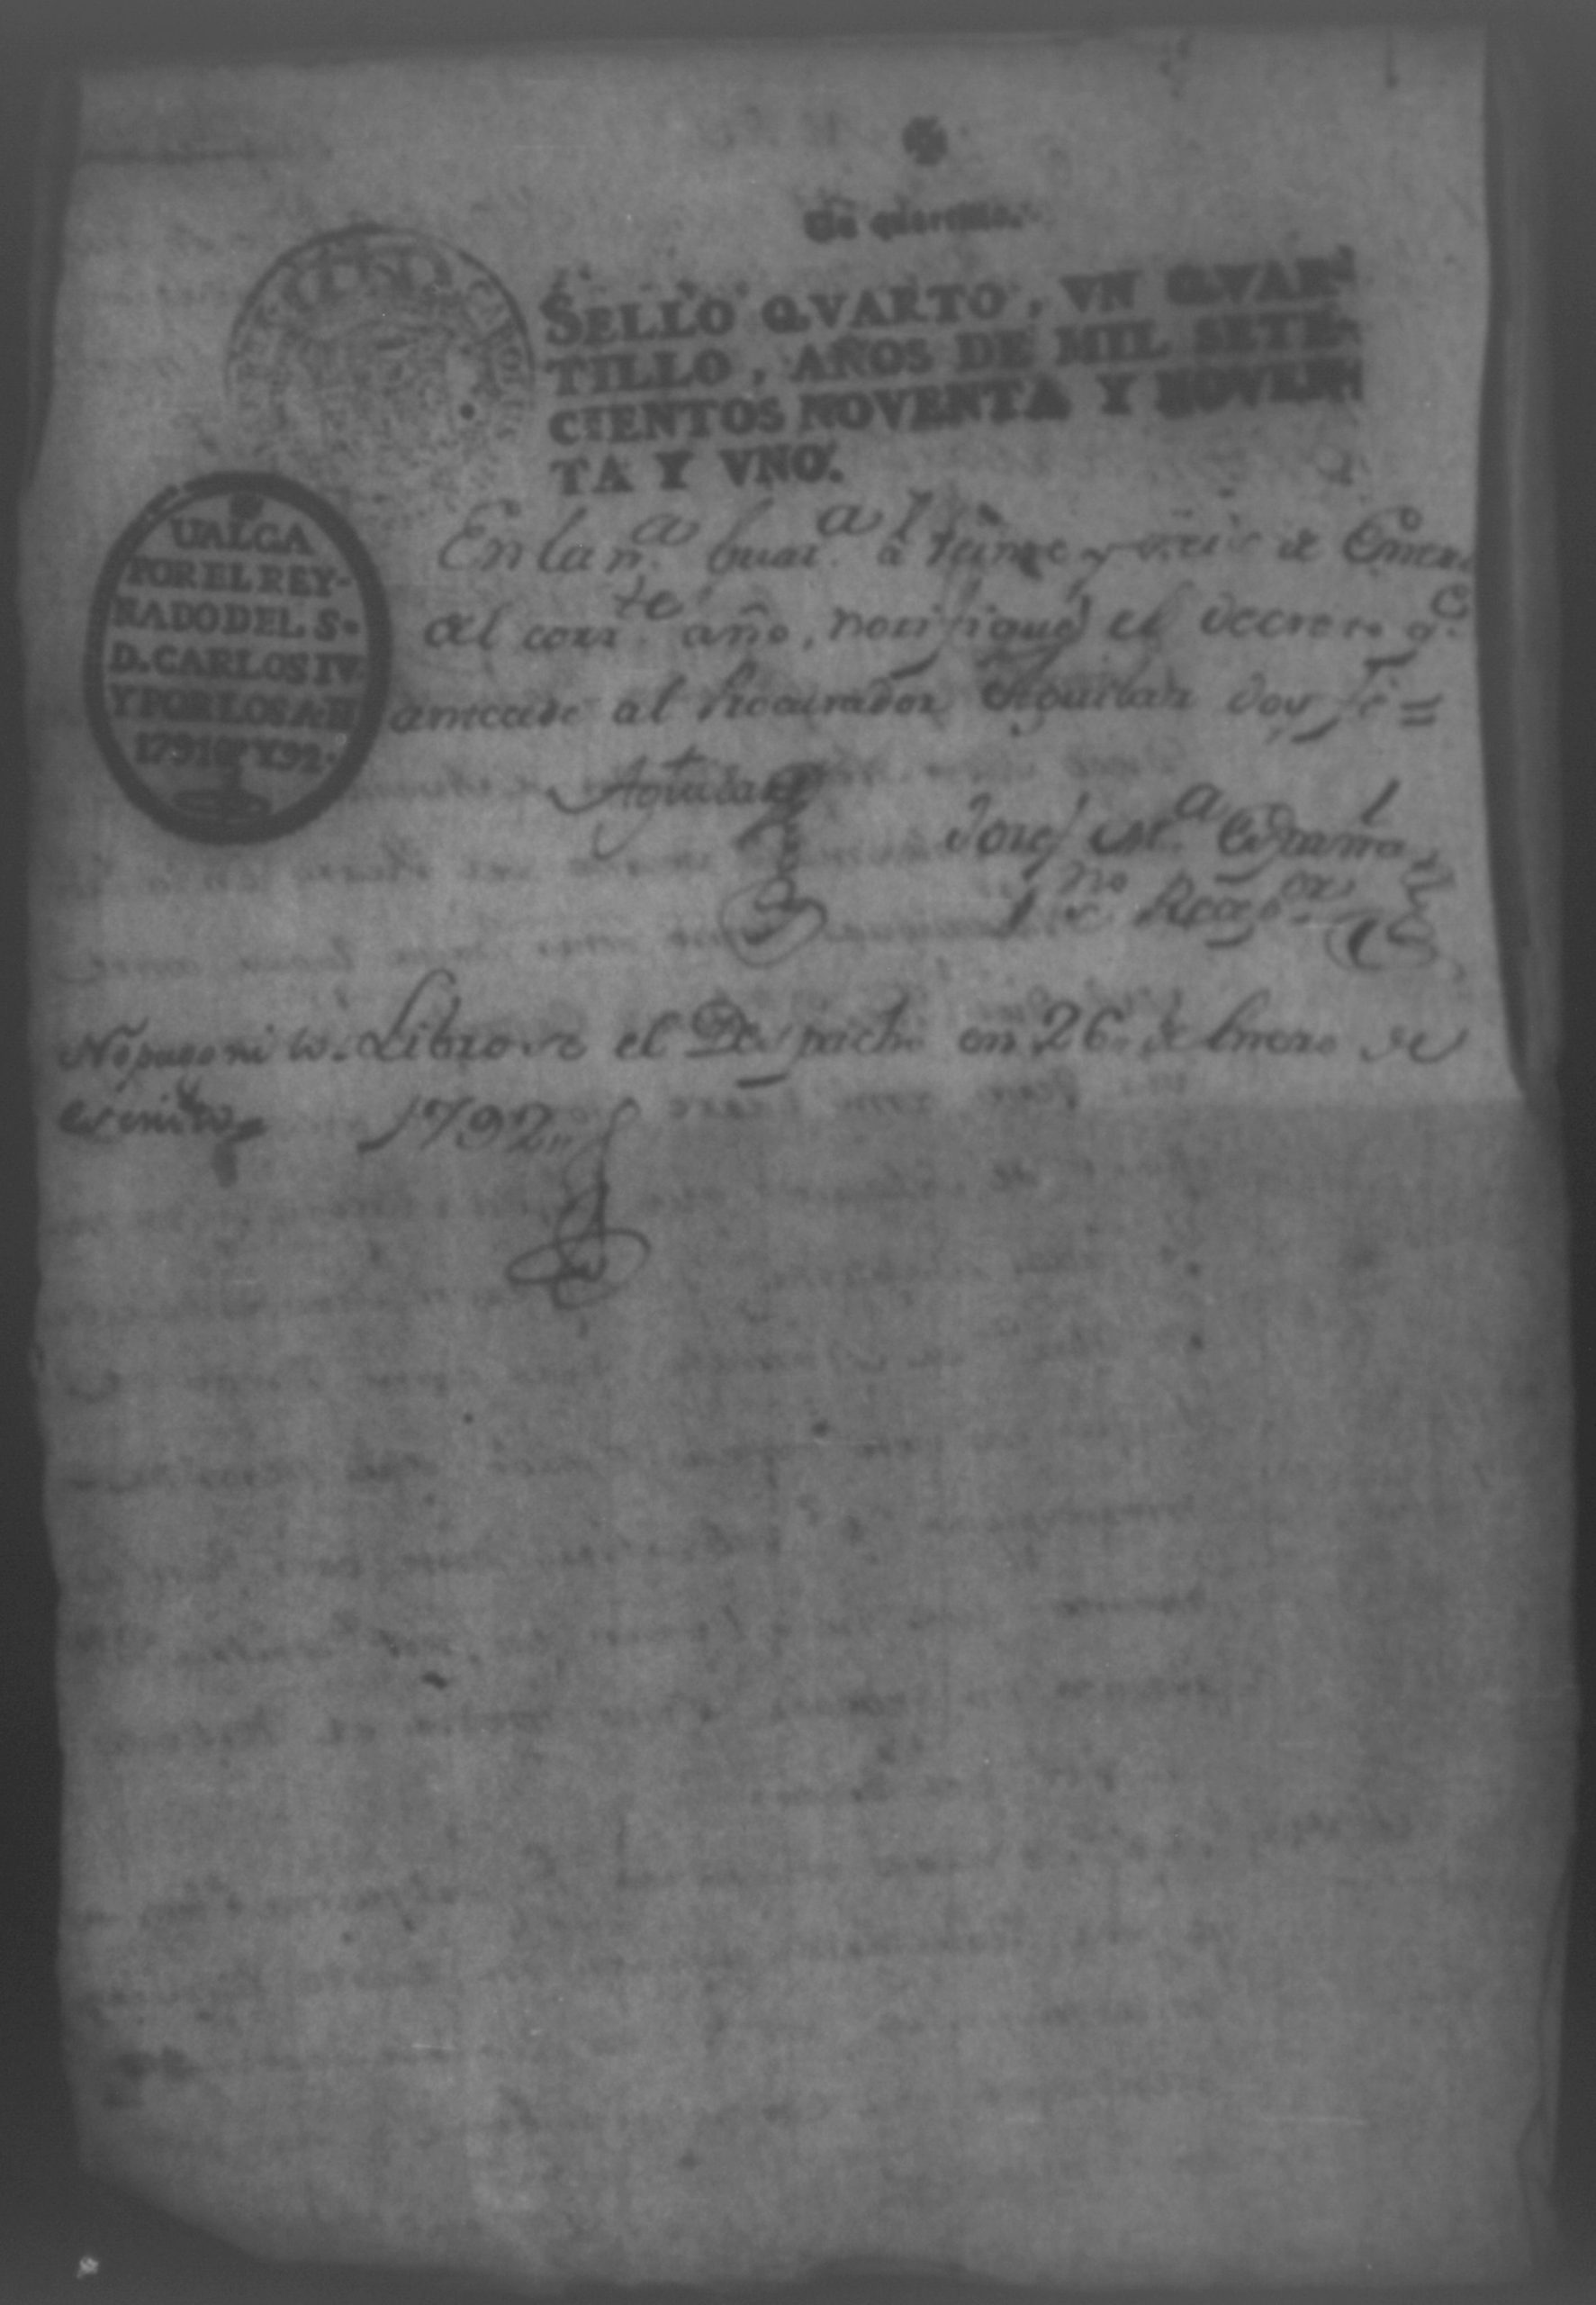 Un quartillo.
SELLO QVARTO, VN QVAR-
TILLO, AÑOS DE MIL SETE-
CIENTOS NOVENTA Y NOVEN-
TA Y VNO.
UALGA
POR EL REY-
NADO DEL S.
D. CARLOS IV.
Y POR LOS A.
1791 Y 92.
En la n.a Guat.a a y seis de Enero
del corr.te año, notifiqué el decreto q.e
antecede al Procurador Aguilar doy fé =
Aguilar
Josef M.a
no Recep.or
No pago ni Libróse el Despacho en 26 de Enero de
1792